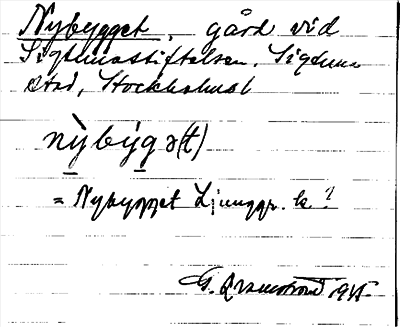 Nybygget, gård vid
Sigtunastiftelsen. Sigtuna
stad, Stockholmsl
nỳbýgə(t)
= Nybygget Ljunggr. k?
G. 1915